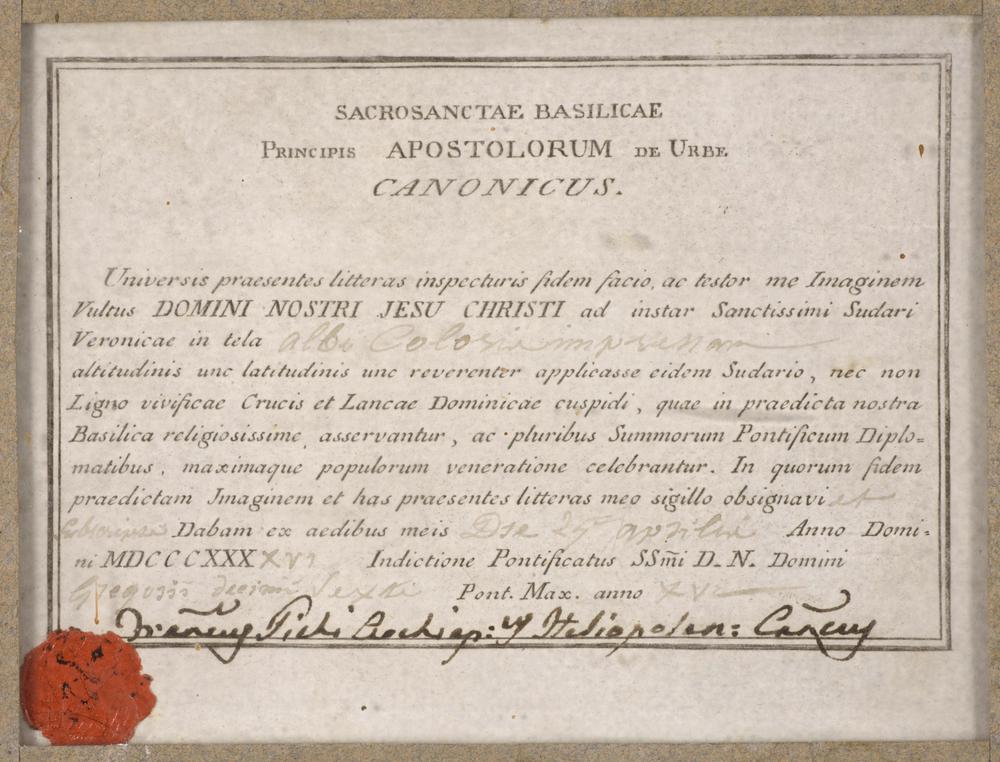 SACROSANCTAE BASILICAE
PRINCIPIS APOSTOLORUM DE URBE
CANONICUS.
Universis praesentes litteras inspecturis fidem facio, ac testor me Imaginem
Vultus DOMINI NOSTRI JESU CHRISTI ad instar Sanctissimi Sudari
Veronicae in tela albi Coloris impressam
altitudinis unc latitudinis unc reverenter applicasse eidem Sudario, nec non
Ligno vivificae Crucis et Lancae Dominicae cuspidi, quae in praedicta nostra
Basilica religiosissime asservantur, ac pluribus Summorum Pontificum Diplo=
matibus, maximaque populorum veneratione celebrantur. In quorum fidem
praedictam Imaginem et has praesentes litteras meo sigillo obsignavi et
Dabam ex aedibus meis Die 25 aprilis Anno Domi-
ni MDCCCXXXXVI Indictione Pontificatus SSmi D. N. Domini
Gregorii decimi Sexti Pont. Max. anno XVI
Archiep: Heliopolen: